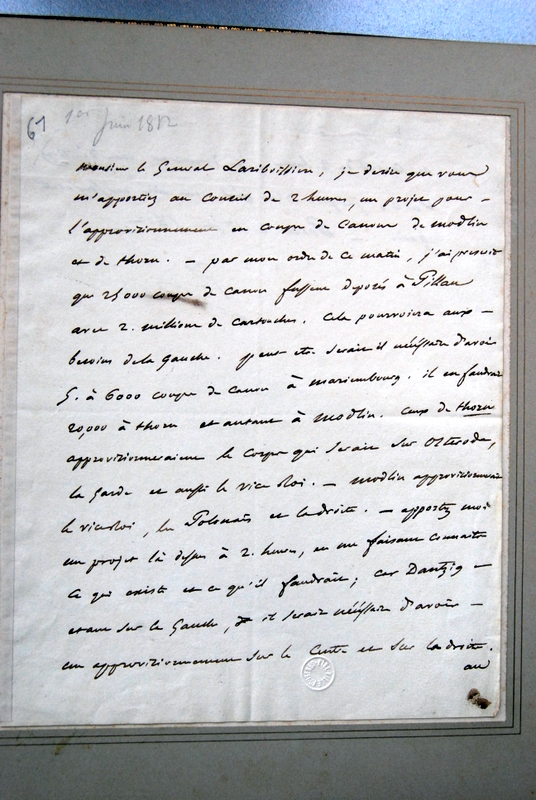 61
1er Juin 1812
Monsieur le General Lariboissiere, je desire que vous
m'apportiez au Conseil de 2 heures, un projet pour -
l'approvizionnement en coups de Canon de modlin
et de thorn. - par mon ordre de ce matin, j'ai prescrit
que 25000 coups de canon fussent deposés à Pillau
avec 2. millions de cartouches. Cela pourvoira aux -
besoins de la gauche. peut etre serait il nécéssaire d'avoir
5. à 6000 coups de canon à mariembourg. il en faudrait
20,000 à thorn et autant à Modlin. Ceux de thorn
approvizionneraient le Corps qui serait sur Osterode,
la Garde et aussi le vice Roi. - Modlin approvizionnerait
le vice Roi, les Polonais et la droite. - apportez moi
un projet là dessus à 2. heures, en me faisant connaitre
ce qui existe et ce qu'il faudrait; car Dantzig -
etant sur la Gauche, il serait nécéssaire d'avoir -
un approvizionnement sur le Centre et sur la droite.
au